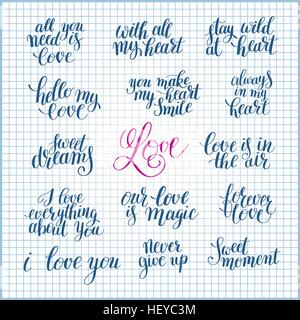 all you
need is
love
with all
my heart
stay wild
at heart
hello my
love
you make
my heart
smile
always
in my
heart
sweet
dreams
Love
love is in
the air
I love
everything
about you
our love
is magic
forever
love
i love you
Never
give up
Sweet
moment
alamy stock photo
HEYC3M